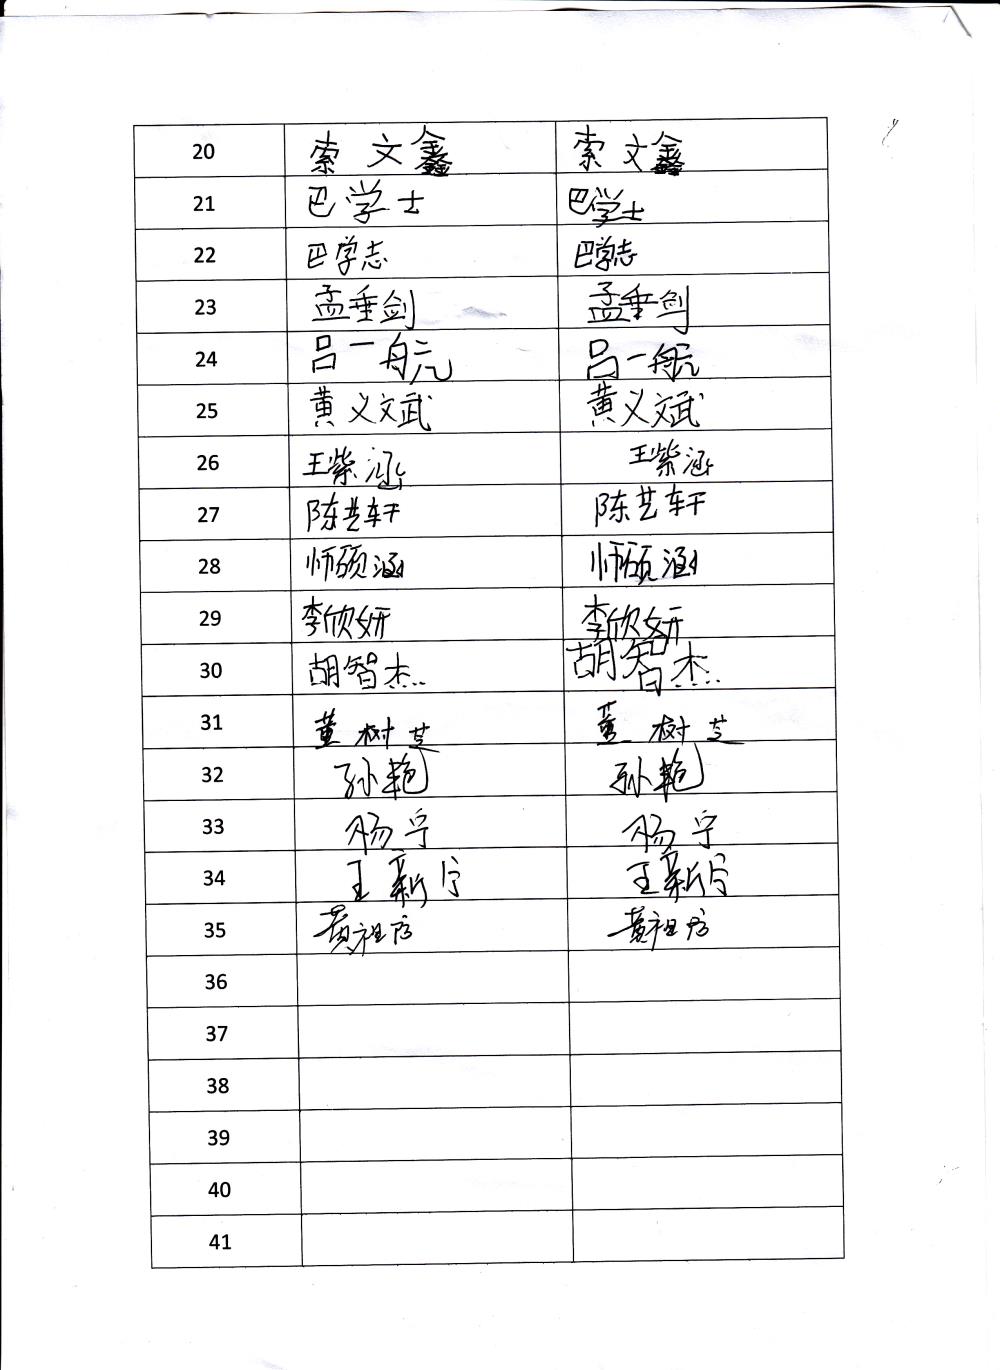 20 索文鑫 索文鑫
21 巴学士 巴学士
22 巴学志 巴学志
23 孟垂剑 孟垂剑
24 吕一航 吕一航
25 黄义文武 黄义文武
26 王紫涵 王紫涵
27 陈艺轩 陈艺轩
28 师硕涵 师硕涵
29 李欣妍 李欣妍
30 胡智杰 胡智杰
31 董树芝 董树芝
32 孙艳 孙艳
33 杨宁 杨宁
34 王新宁 王新宁
35 黄祖 黄祖
36
37
38
39
40
41